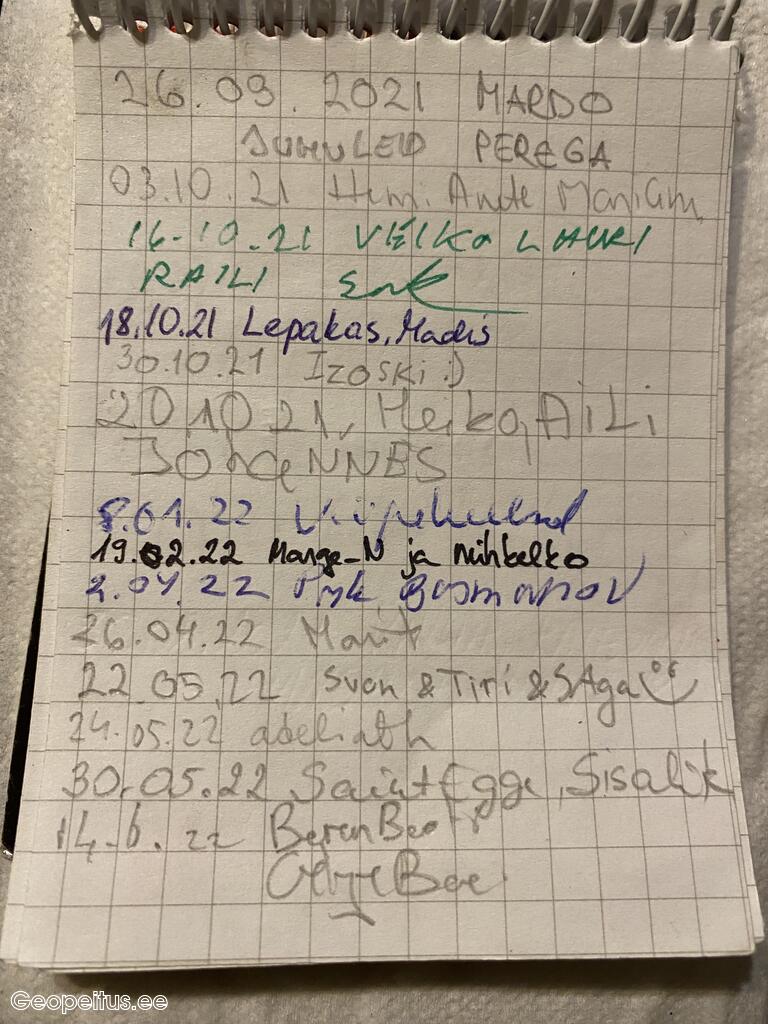 26.09.2021 MARDO
JUHULEID PEREGA
03.10.21
16.10.21 VELKO LAURI
RAILI
18.10.21 Lepakas, Madis
30.10.21 Izoski :)
20 10 21, Heiko, AiLi
JOhaNNES
8.01.22
19.02.22 Marge-N ja nühkelko
2.04.22
26.04.22 Marit
22.05.22 Sven & Tiri & SAga
24.05.22 adeliath
30.05.22 SaintEgge, Sisalik
14.6.22
Geopeitus.ee